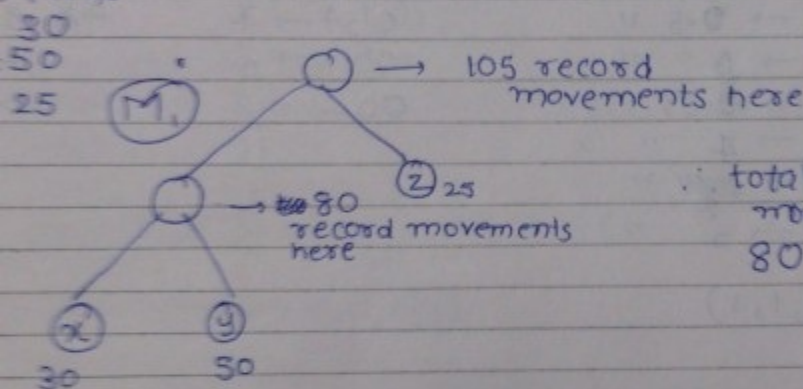 30
50
25
M1
→ 105 record
movements here
z 25
→ 80
record movements
here
∴ tota
no
80
x y
30 50